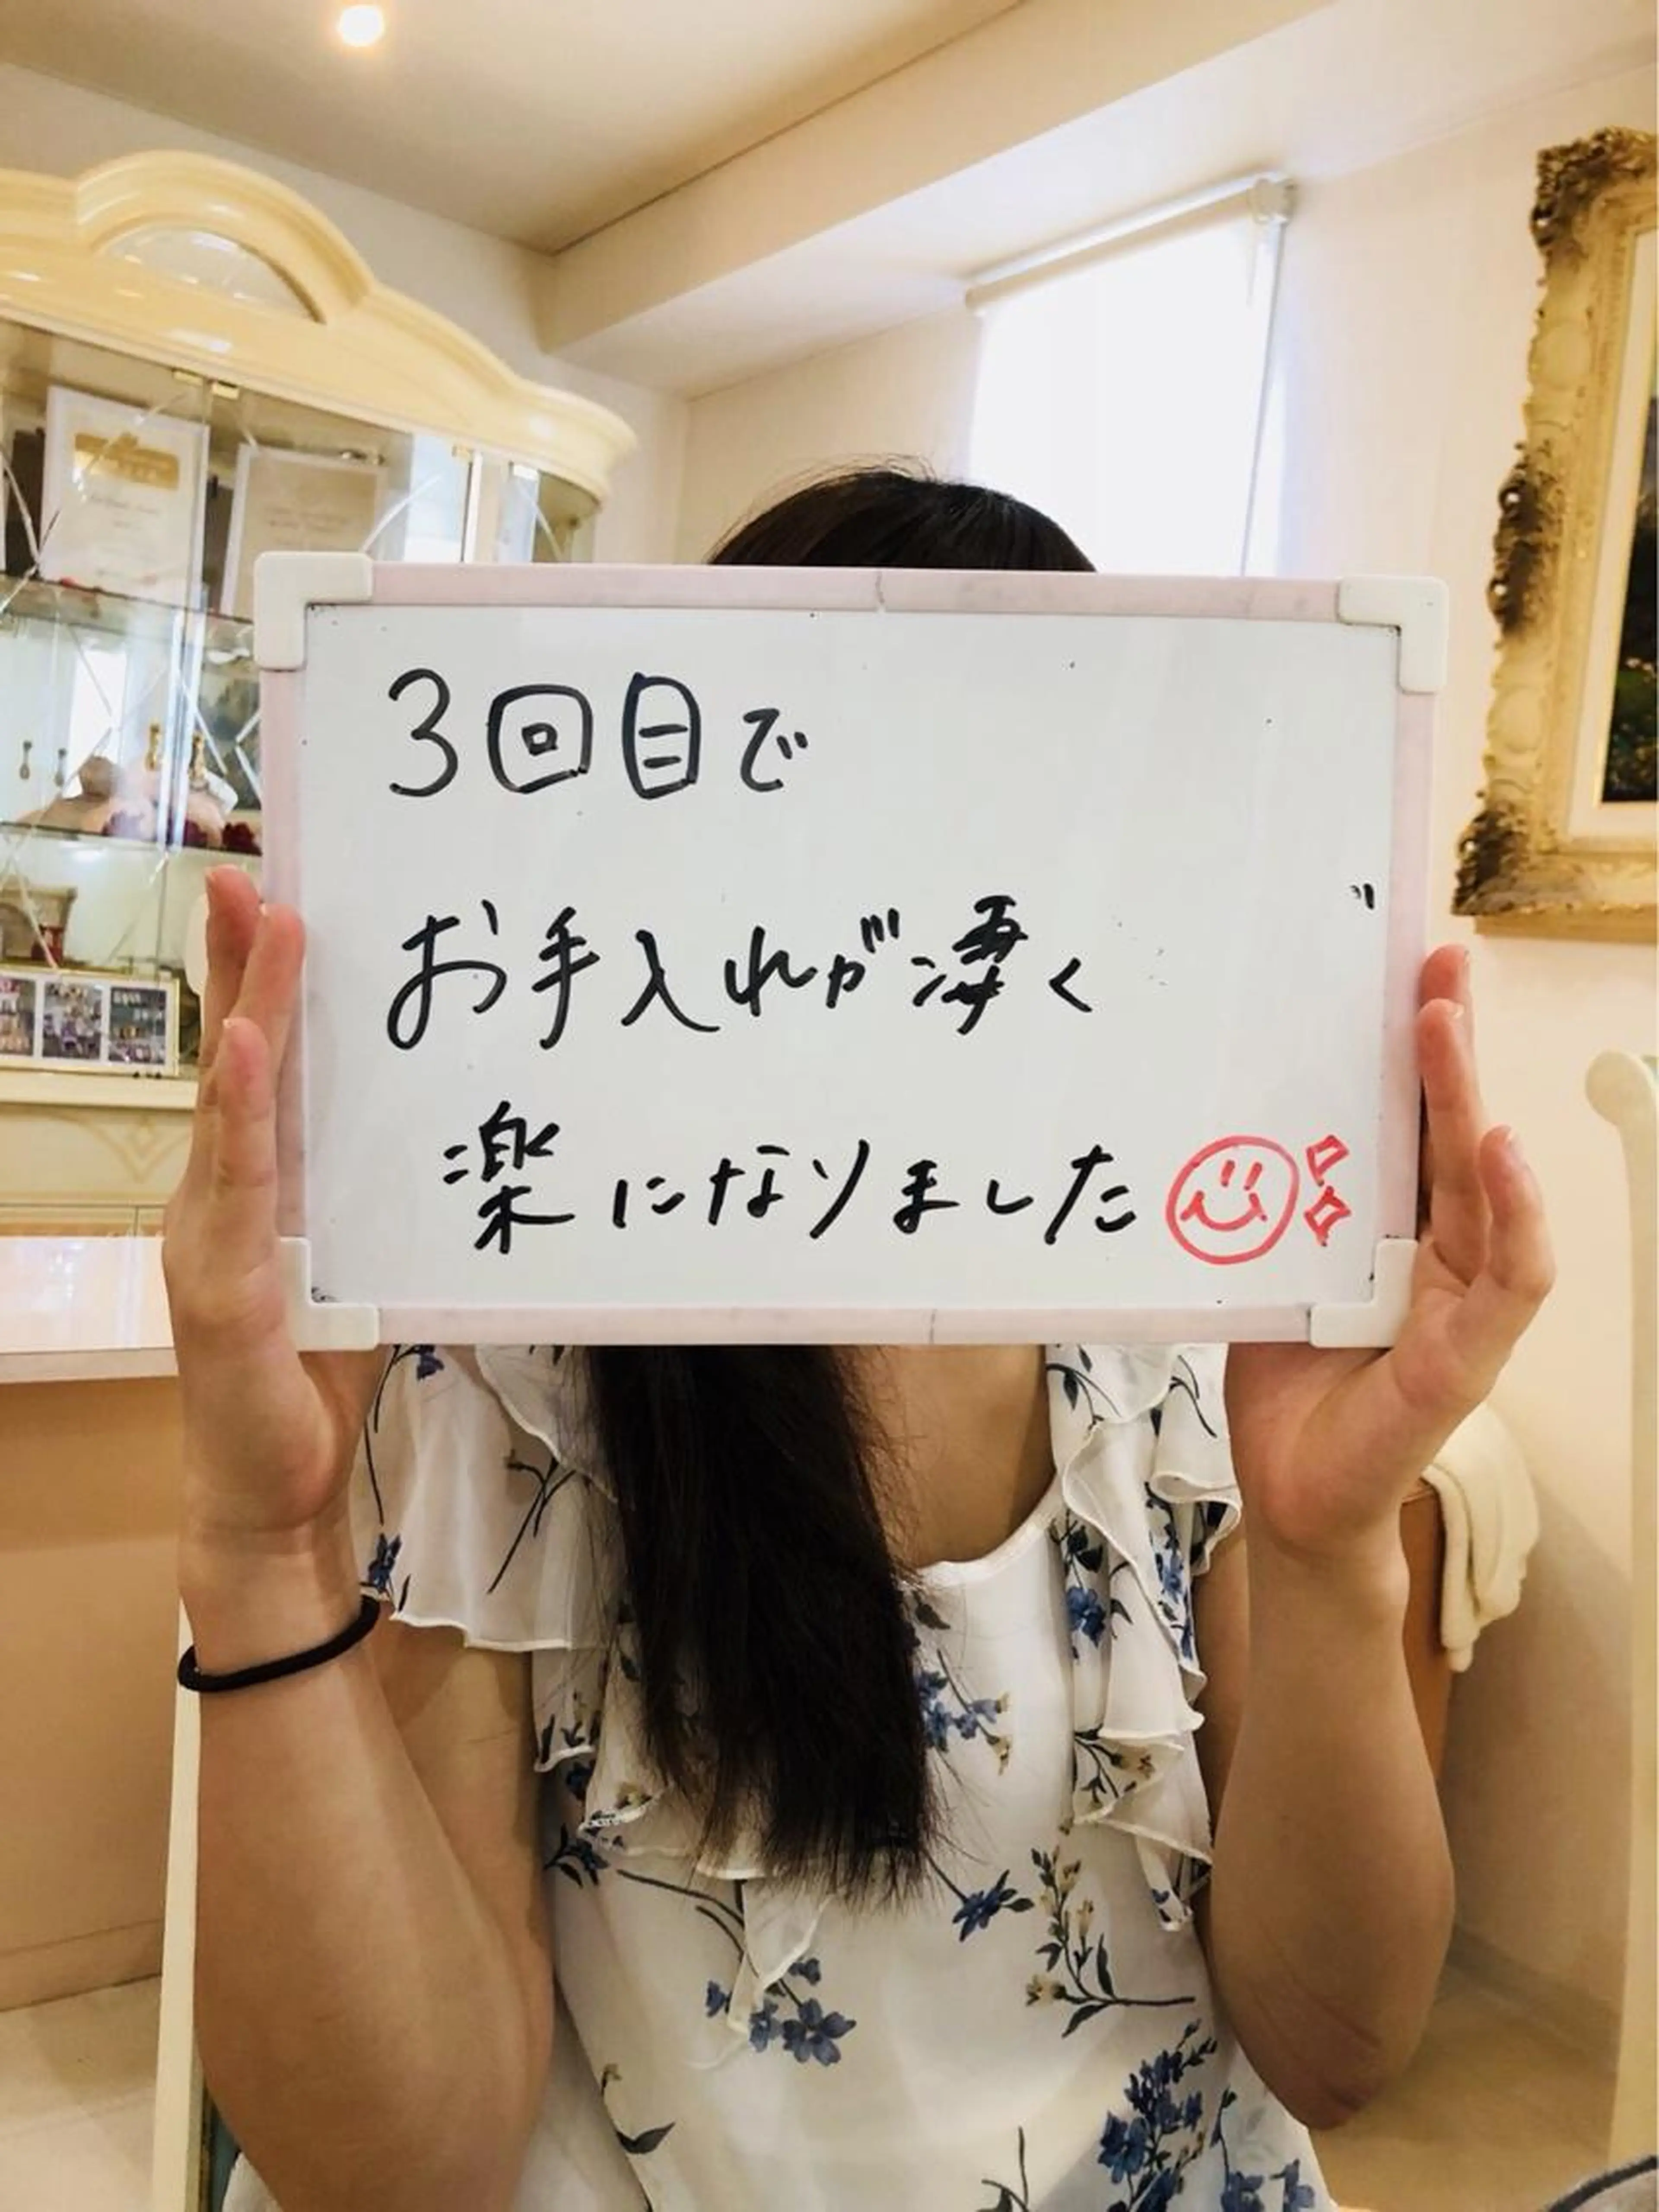 3回目で
お手入れが凄く
楽になりました